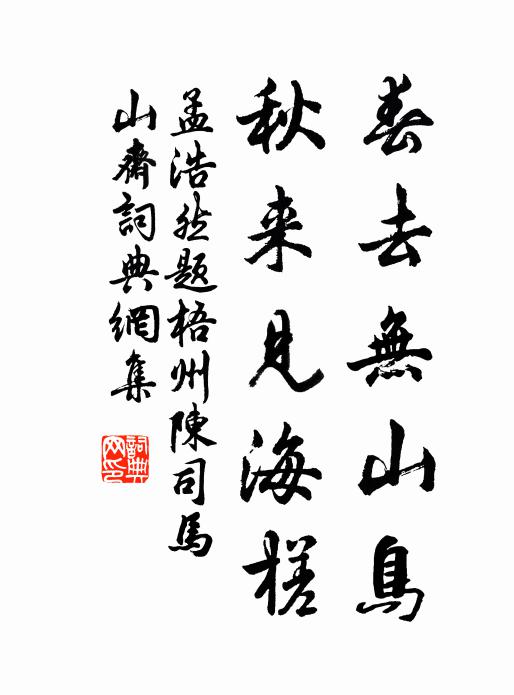 春去無山鳥
秋来見海槎
孟浩然题梧州陳司馬
山齋詞典網集
詞典网印